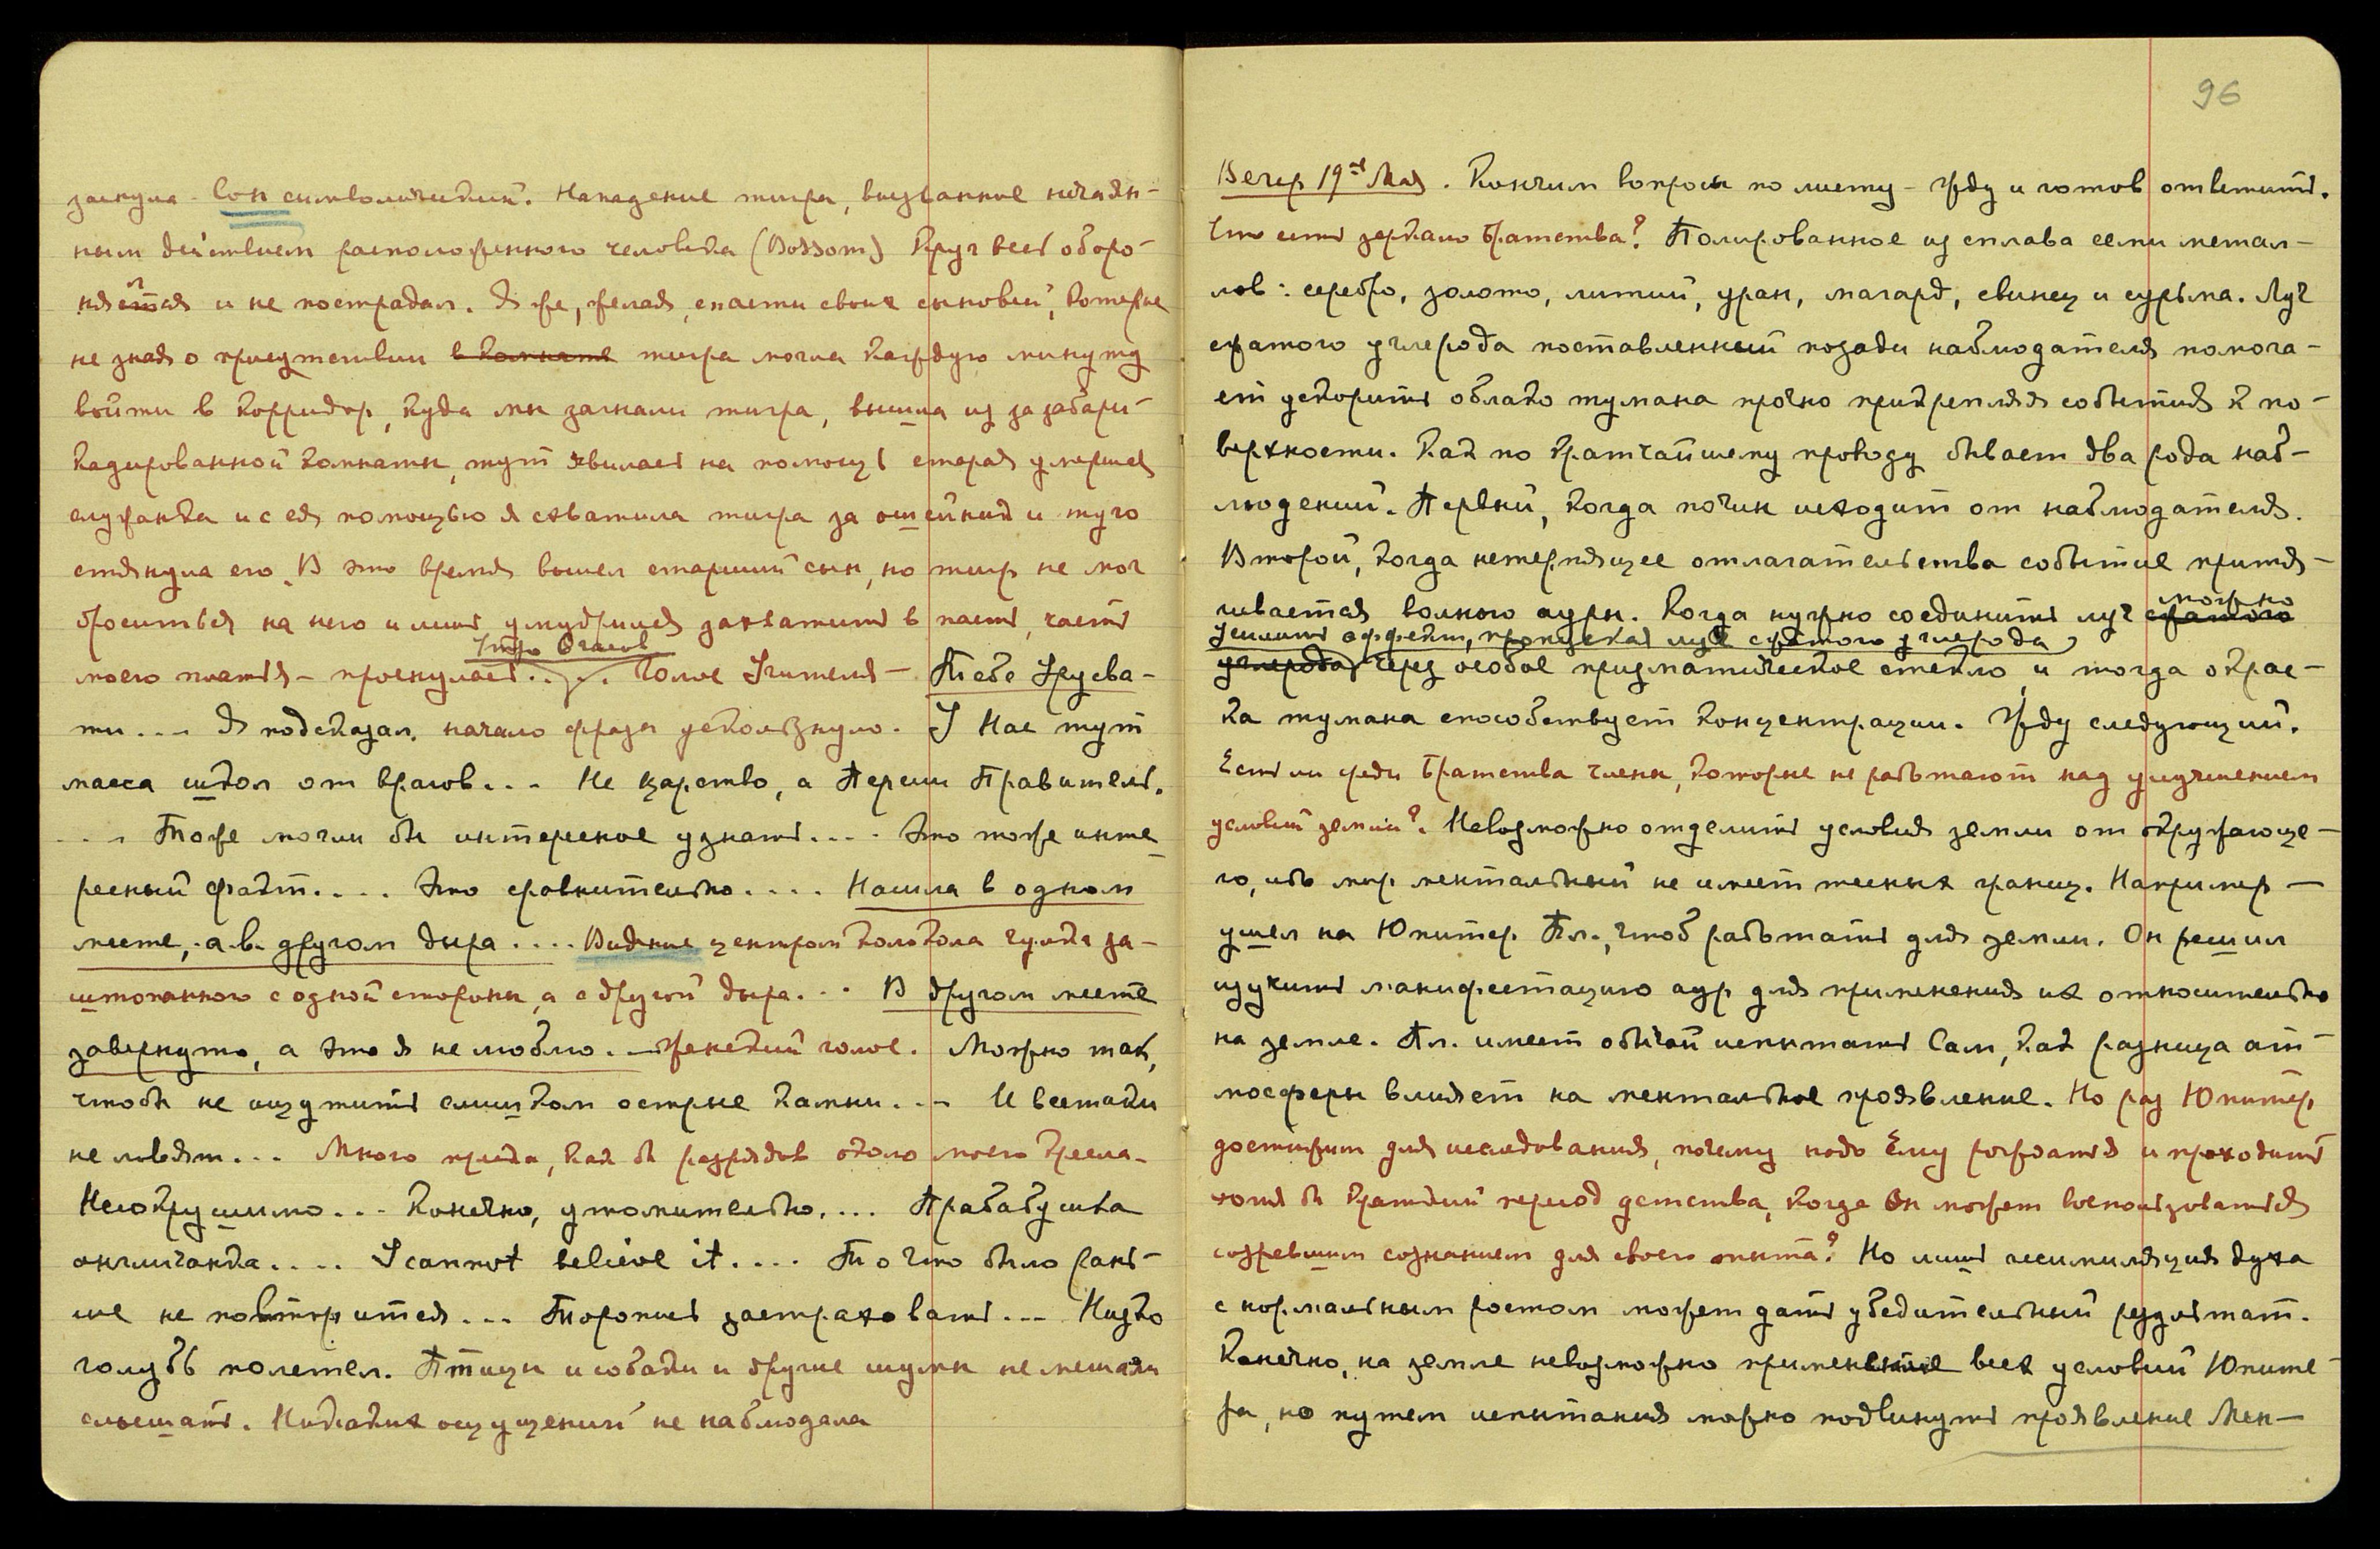 заснула - Сон символический. Нападение тигра, вызванное нечаян-
ным действием расположенного человека (Bossom) Круг весь оборо-
нялся и не пострадал. Я же, желая спасти своих сыновей, которые
не зная о присутствии в комнате тигра могли каждую минуту
войти в корридор, куда мы загнали тигра, вышла из за забари-
кадированной комнаты, тут явилась на помощь старая умершая
служанка и с ея помощью я схватила тигра за ошейник и туго
стянула его. В это время вышел старший сын, но тигр не мог
броситься на него и лишь умудрился захватить в пасть, часть
Утро 6 часов
моего платья - проснулась.... Голос Учителя - Тебе Урусва-
ти... Я подсказал, начало фразы ускользнуло. У Нас тут
масса школ от врагов... Не царство, а Персии Правитель.
... Тоже могли бы интересное узнать.... Это тоже инте-
ресный факт.... Это сравнительно.... Нашла в одном
месте, а в другом дыра.... Видение центром колокола чулка за-
штопанного с одной стороны, а с другой дыра... В другом месте
завернуто, а это я не люблю. - Женский голос. Можно так,
чтобы не ощутить слишком острые камни... И всетаки
не ловят... Много треска, как бы разрядов около моего кресла.
Несокрушимо... Конечно, утомительно.... Прабабушка
англичанка.... I cannot believe it.... То что было рань-
ше не повторится... Торопись застраховать... Низко
голубь полетел. Птицы и собаки и другие шумы не мешали
слышать. Никаких ощущений не наблюдала
96
Вечер 19ое Мая. Кончим вопросы по листу - Жду и готов ответить.
Что есть зеркало Братства? Полированное из сплава семи метал-
лов: серебро, золото, литий, уран, магард, свинец и сурьма. Луч
сжатого углерода поставленный позади наблюдателя помога-
ет ускорить облако тумана прочно прикрепляя события к по-
верхности. Как по кратчайшему проводу бывает два рода наб-
людений. Первый, когда почин исходит от наблюдателя.
Второй, когда нетерпящее отлагательства событие притя-
гивается волною ауры. Когда нужно соединить луч сжатого
можно
усилить эффект, пропуская луч сжатого углерода
углерода через особое призматическое стекло, и тогда окрас-
ка тумана способствует концентрации. Жду следующий.
Есть ли среди Братства члены, которые не работают над улучшением
условий земли? Невозможно отделить условия земли от окружающе-
го, ибо мир ментальный не имеет тесных границ. Например -
ушел на Юпитер Пл., чтоб работать для земли. Он решил
изучить манифестацию аур для применения их относительно
на земле. Пл. имеет обычай испытать Сам, как разница ат-
мосферы влияет на ментальное проявление. Но раз Юпитер
достижим для исследования, почему надо Ему рождаться и проходить
хотя бы краткий период детства, когда Он может воспользоваться
созревшим сознанием для своего опыта? Но лишь ассимиляция духа
с нормальным ростом может дать убедительный результат.
Конечно, на земле невозможно применение всех условий Юпите-
ра, но путем испытания можно подвинуть проявление Мен-